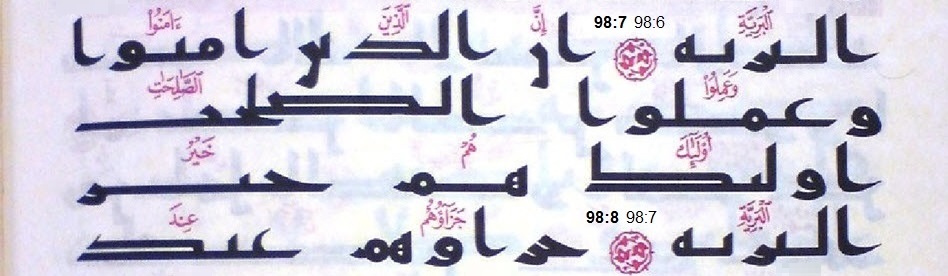 ٱلْبَرِيَّةِ 98:6 98:7 إِنَّ ٱلَّذِينَ ءَامَنُوا۟
البريه ان الذين امنوا
وَعَمِلُوا۟ ٱلصَّـٰلِحَـٰتِ
وعملوا الصلحت
أُو۟لَـٰٓئِكَ هُمْ خَيْرُ
اوليك هم خير
ٱلْبَرِيَّةِ 98:7 98:8 جَزَآؤُهُمْ عِندَ
البريه جزاوهم عند